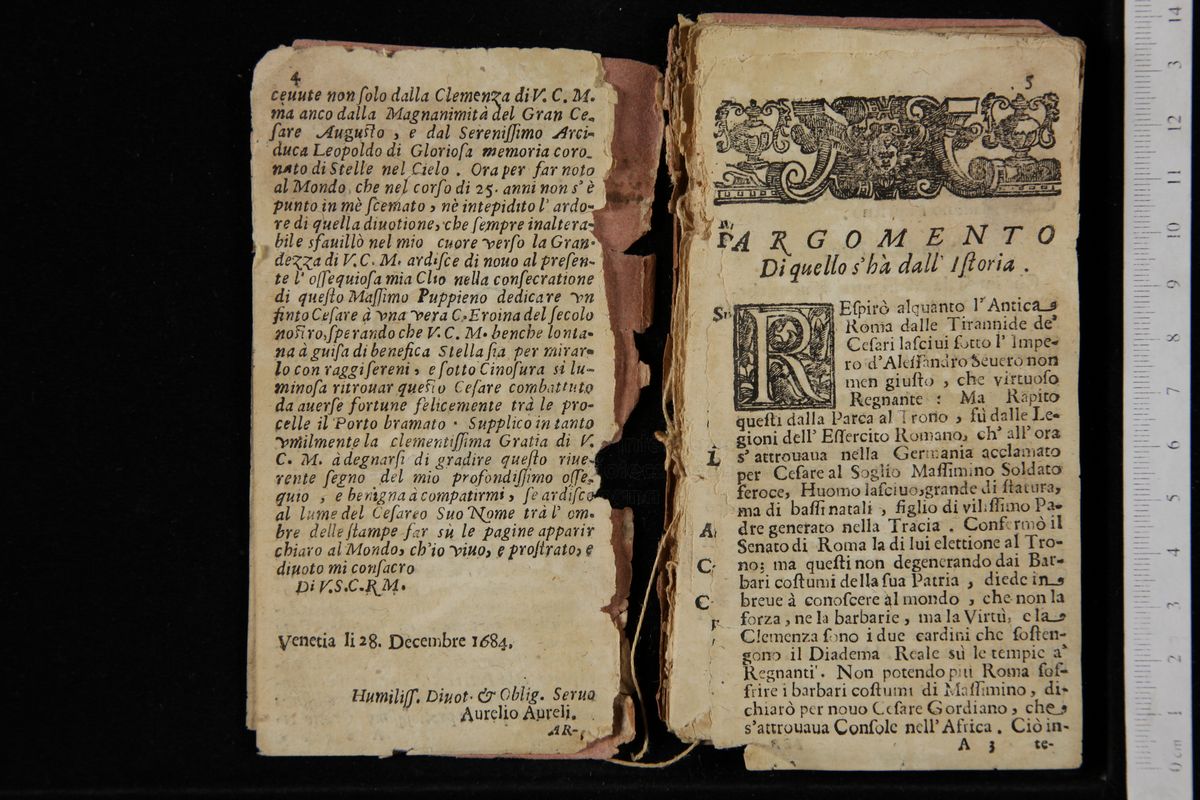 4
ceuute non ſolo dalla Clemenza di V. C. M.
ma anco dalla Magnanimità del Gran Ce-
ſare Auguſto, e dal Sereniſſimo Arci-
duca Leopoldo di Glorioſa memoria coro-
nato di Stelle nel Cielo. Ora per far noto
al Mondo, che nel corſo di 25. anni non s'è
punto in mè ſcemato, nè intepidito l'ardo-
re di quella diuotione, che ſempre inaltera-
bile sfauillò nel mio cuore verſo la Gran-
dezza di V. C. M. ardiſce di nouo al preſen-
te l'oſſequioſa mia Clio nella conſecratione
di queſto Maſſimo Puppieno dedicare vn
finto Ceſare à vna vera C. Eroina del ſecolo
noſtro, ſperando che V. C. M. benche lonta-
na à guiſa di benefica Stella ſia per mirar-
lo con raggi ſereni, e ſotto Cinoſura sì lu-
minoſa ritrouar queſto Ceſare combattuto
da auerſe fortune felicemente trà le pro-
celle il Porto bramato. Supplico in tanto
vmilmente la clementiſſima Gratia di V.
C. M. à degnarſi di gradire queſto riue-
rente ſegno del mio profondiſſimo oſſe-
quio, e benigna à compatirmi, ſe ardiſco
al lume del Ceſareo Suo Nome trà l'om-
bre delle ſtampe far sù le pagine apparir
chiaro al Mondo, ch'io viuo, e proſtrato, e
diuoto mi conſacro
Di V.S.C.R.M.
Venetia li 28. Decembre 1684.
Humiliſſ. Diuot. & Oblig. Seruo
Aurelio Aureli.
AR-
5
ARGOMENTO
Di quello s'hà dall' Iſtoria.
REſpirò alquanto l'Antica
Roma dalle Tirannide de'
Ceſari laſciui ſotto l' Impe-
ro d'Aleſſandro Seuero non
men giuſto, che virtuoſo
Regnante: Ma Rapito
queſti dalla Parca al Trono, fù dalle Le-
gioni dell' Eſſercito Romano, ch' all' ora
s'attrouaua nella Germania acclamato
per Ceſare al Soglio Maſſimino Soldato
feroce, Huomo laſciuo, grande di ſtatura,
ma di baſſi natali, figlio di viliſſimo Pa-
dre generato nella Tracia. Confermò il
Senato di Roma la di lui elettione al Tro-
no; ma queſti non degenerando dai Bar-
bari coſtumi della ſua Patria, diede in
breue à conoſcere al mondo, che non la
forza, ne la barbarie, ma la Virtù, e la
Clemenza ſono i due cardini che ſoſten-
gono il Diadema Reale sù le tempie a'
Regnanti. Non potendo più Roma ſof-
frire i barbari coſtumi di Maſſimino, di-
chiarò per nouo Ceſare Gordiano, che
s'attrouaua Conſole nell'Africa. Ciò in-
A 3 te-